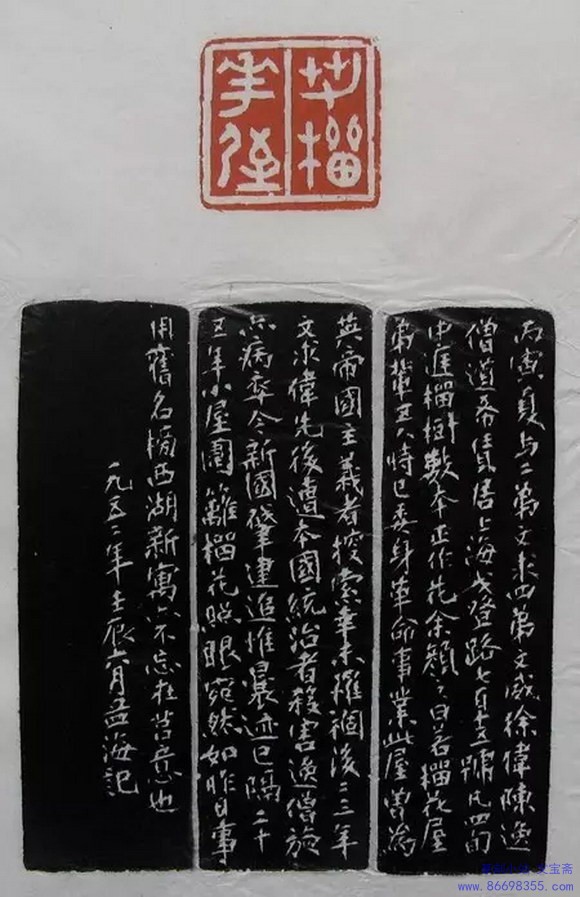 若榴
花屋
丙寅夏与二弟文求四弟文威徐偉陳逸
僧道希賃居上海戈登路七百十五號凡四間
中庭榴樹數本正作花余顏之曰若榴花屋
弟輩五人時已委身革命事業此屋曾為
英帝國主義者搜索幸未罹禍後二三年
文求偉先後遭本國統治者殺害逸僧旋
亦病卒今新國肇建追惟曩迹已隔二十
五年小屋圍籬榴花照眼宛然如昨日事
用舊名榜西湖新寓亦不忘在莒意也
一九五二年壬辰六月孟海記
www.86698355.com